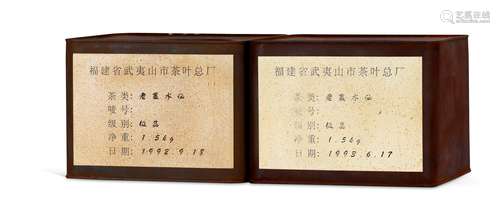 福建省武夷山市茶叶总厂
茶类: 老丛水仙
唛号:
级别: 极品
净重: 1.5kg
日期: 1992.9.18
福建省武夷山市茶叶总厂
茶类: 老丛水仙
唛号:
级别: 极品
净重: 1.5kg
日期: 1993.6.17